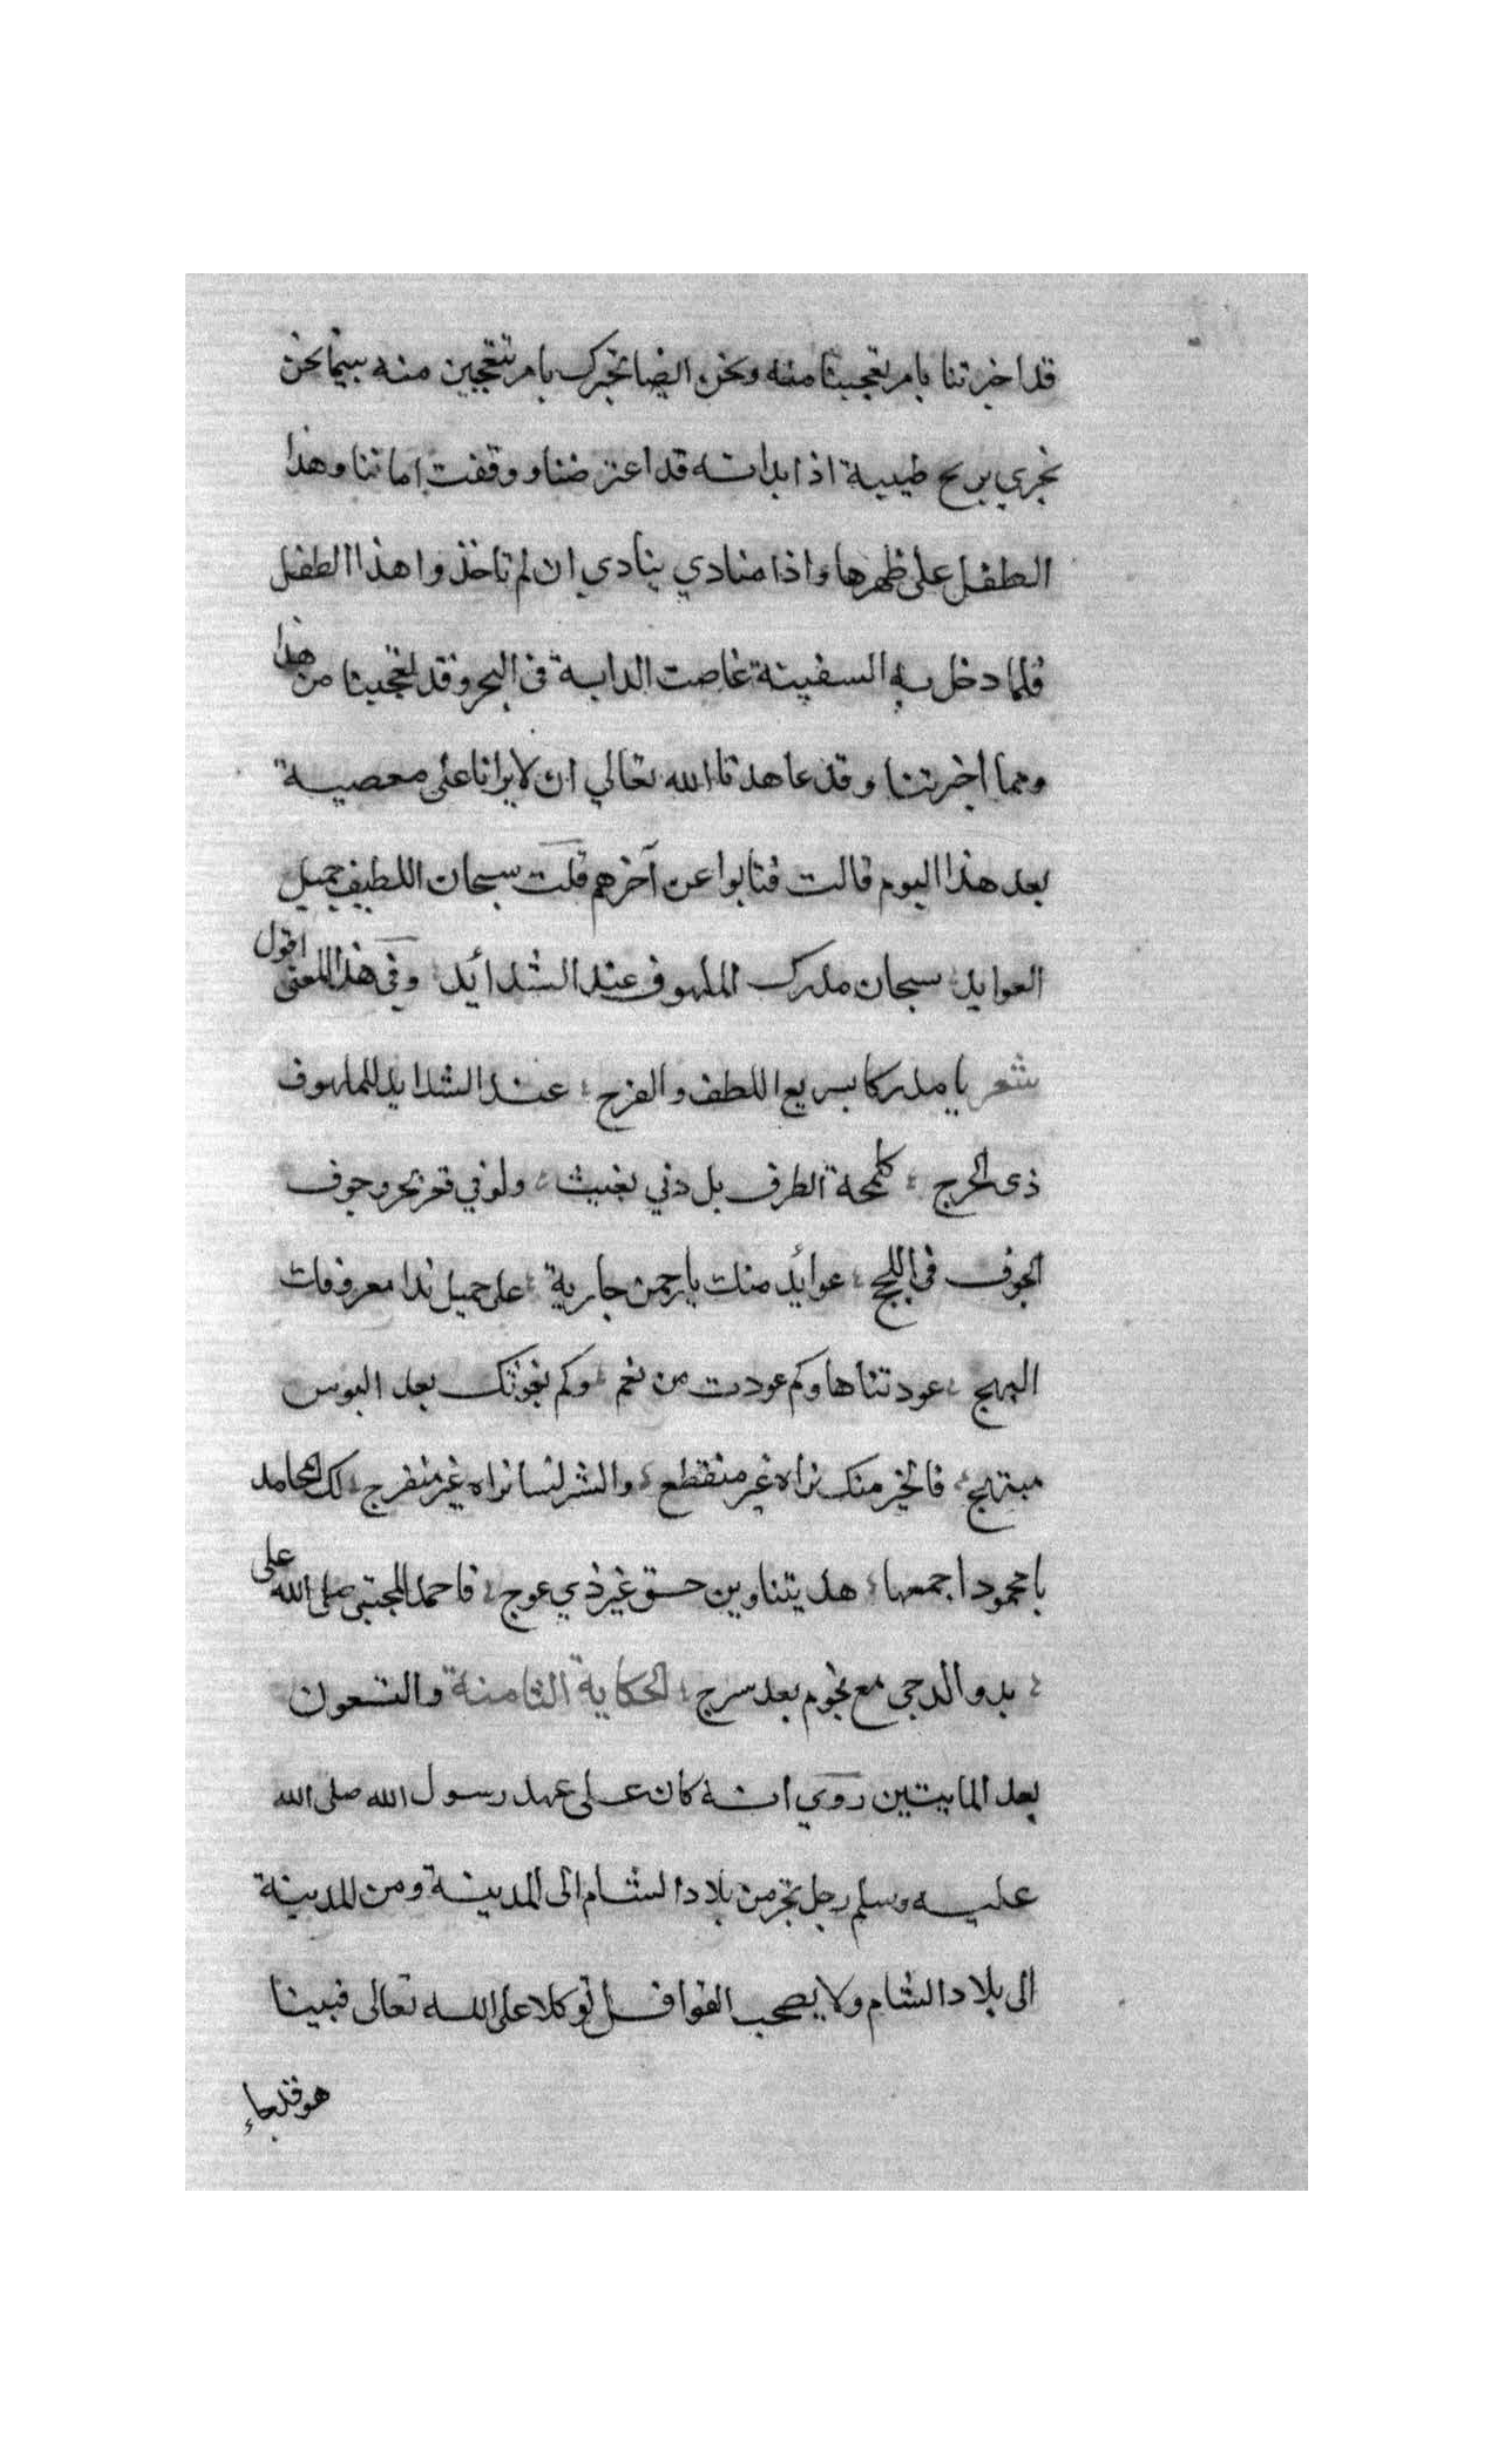 قد اخبرتنا بامر تعجبنا منه ونحن ايضا نخبرك بامر تتعجبين منه بينما نحن
نجري بريح طيبة اذا بدابة قد اعترضنا ووقفت امامنا وهذا
الطفل على ظهرها واذا منادي ينادي ان لم تاخذوا هذا الطفل
فلما دخل به السفينة غاصت الدابة في البحر وقد تعجبنا من هذا
ومما اخبرتنا وقد عاهدنا الله تعالي ان لا يرانا على معصية
بعد هذا اليوم قالت فتابوا عن آخرهم قلت سبحان اللطيف جميل
العوايد سبحان مدرك الملهوف عند الشدائد وفي هذا المعنى اقول
شعر يا مدركا بسريع اللطف والفرج ؛ عند الشدايد للملهوف
ذى الحرج ؛ كلمحة الطرف بل دني تغيث ؛ ولو في قعر بحر وجوف
الجوف في اللجج ؛ عوائد منك يا رحمن جارية ؛ على جميل ندا معروفك
البهج ؛ عودتناها وكم عودت من نعم ؛ وكم بغوثك بعد البوس
مبتهج ؛ فالخير منك نراه غير منقطع ؛ والشر لسنا نراه غير منفرج ؛ لك المحامد
يا محمود اجمعها ؛ هديتنا دين حق غير ذي عوج ؛ فاحمد المجتبى صلى الله على
؛ بدو الدجى مع نجوم بعد سرج ؛ الحكاية الثامنة والتسعون
بعد المايتين روي انه كان على عهد رسول الله صلى الله
عليه وسلم رجل يتجر من بلاد الشام الى المدينة ومن المدينة
الى بلاد الشام ولا يصحب القوافل توكلا على الله تعالى فبينا
هو قد جاء